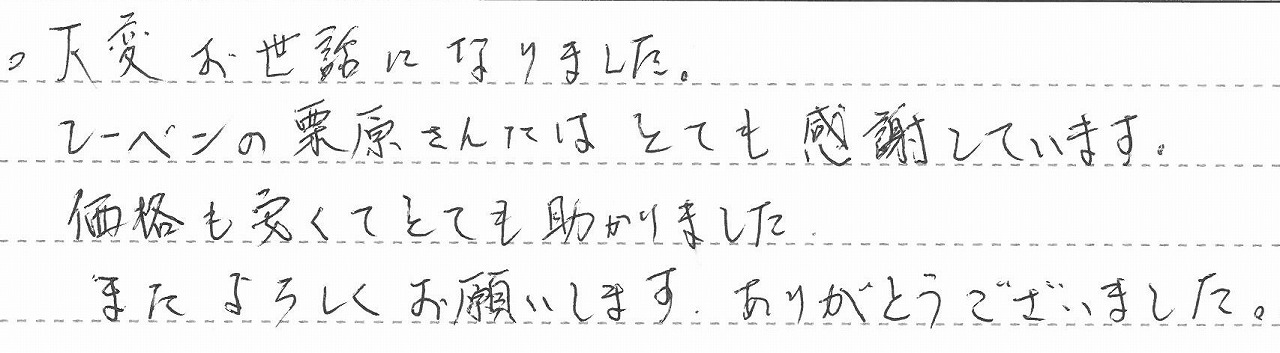 ○大変お世話になりました。
レーベンの栗原さんにはとても感謝しています。
価格も安くてとても助かりました.
またよろしくお願いします.ありがとうございました。